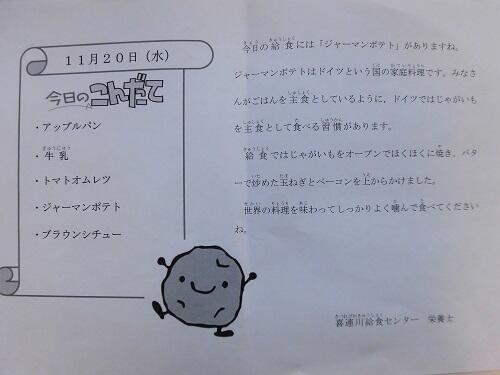 11月20日（水）
今日のこんだて
・アップルパン
・牛乳
・トマトオムレツ
・ジャーマンポテト
・ブラウンシチュー
今日の給食には「ジャーマンポテト」がありますね。
ジャーマンポテトはドイツという国の家庭料理です。みなさ
んがごはんを主食としているように、ドイツではじゃがいも
を主食として食べる習慣があります。
給食ではじゃがいもをオーブンでほくほくに焼き、バタ
ーで炒めた玉ねぎとベーコンを上からかけました。
世界の料理を味わってしっかりよく噛んで食べてください
ね。
喜連川給食センター　栄養士